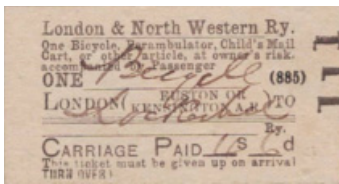 London & North Western Ry.
One Bicycle, Perambulator, Child's Mail
Cart, or other article, at owner's risk,
accompanied by Passenger
ONE Bicycle (885)
LONDON (EUSTON OR KENSINGTON A.R.) TO
Ry.
CARRIAGE PAID S 6d
This ticket must be given up on arrival
TURN OVER)